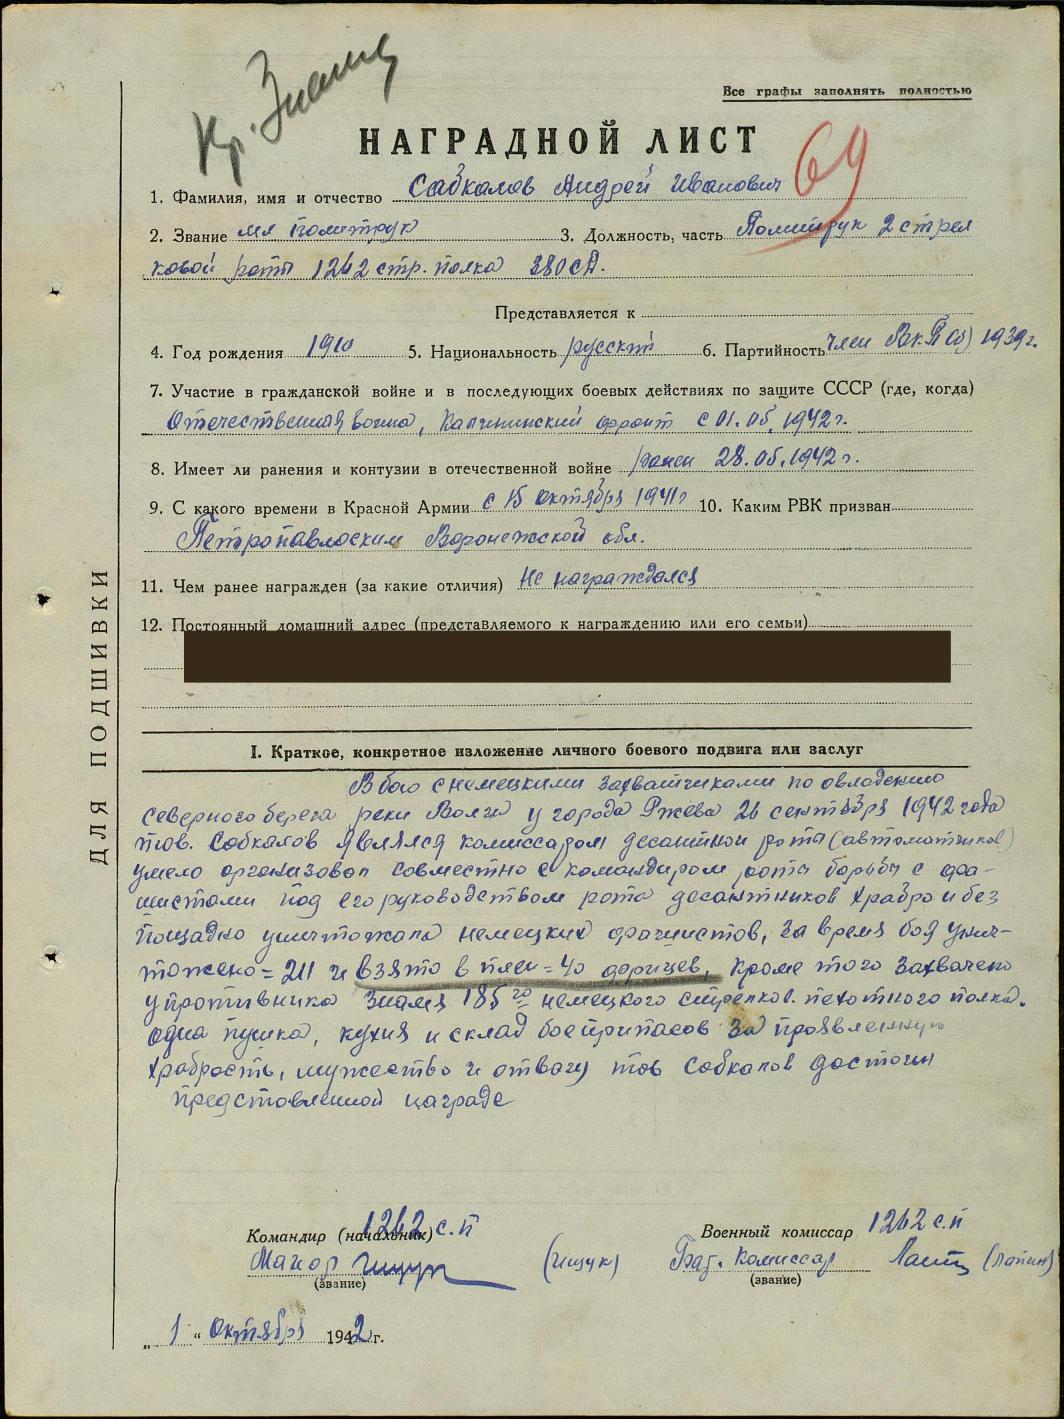 Кр. Знамя
Все графы заполнять полностью
НАГРАДНОЙ ЛИСТ
69
1. Фамилия, имя и отчество Сабкалов Андрей Иванович
2. Звание мл политрук 3. Должность, часть Политрук 2 стрел
ковой роты 1262 стр. полка 380 сд.
Представляется к
4. Год рождения 1910 5. Национальность русский 6. Партийность член ВКП(б) 1939г.
7. Участие в гражданской войне и в последующих боевых действиях по защите СССР (где, когда)
Отечественная война, Калининский фронт с 01.05.1942г.
8. Имеет ли ранения и контузии в отечественной войне ранен 28.05.1942г.
9. С какого времени в Красной Армии с 15 октября 1941г 10. Каким РВК призван
Петропавлоским Воронежской обл.
11. Чем ранее награжден (за какие отличия) Не награждался
12. Постоянный домашний адрес (представляемого к награждению или его семьи)
ДЛЯ ПОДШИВКИ
I. Краткое, конкретное изложение личного боевого подвига или заслуг
В бою с немецкими захватчиками по овладению
северного берега реки Волги у города Ржева 26 сентября 1942 года
тов. Собкалов являлся комиссаром десантной роты (автоматчиков)
умело организовал совместно с командиром роты борьбу с фа-
шистами под его руководством рота десантников храбро и без
пощадно уничтожала немецких фашистов, за время боя унич-
тожено = 211 и взято в плен = 40 фрицев, кроме того захвачено
у противника знамя 185го немецкого стрелков. пехотного полка.
одна пушка, кухня и склад боеприпасов За проявленную
храбрость, мужество и отвагу тов Собкалов достоин
представленной награде
Командир (начальник) 1262 с.п
Военный комиссар 1262 с.п
Майор (Ищук)
Бат. Комиссар (Лапин)
(звание)
(звание)
„1“ октября 1942 г.